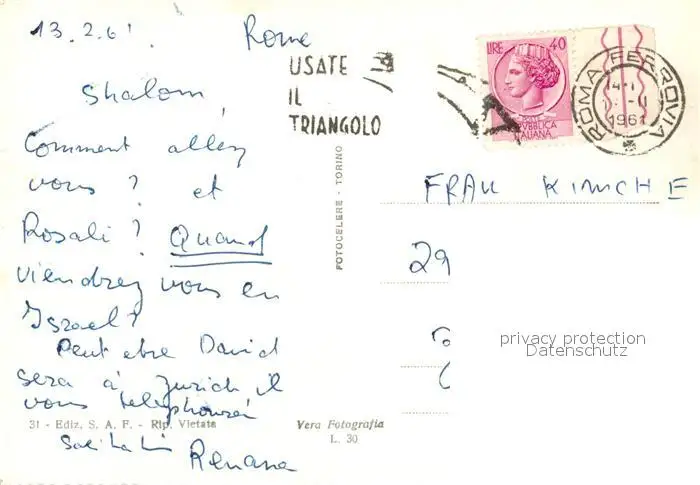 13.2.61
Rome
USATE
IL
TRIANGOLO
LIRE 40
REPUBBLICA
ITALIANA
ROMA FERROVIA
1961
Shalom,
Comment allez
vous ? et
Rosali ? Quand
viendrez vous en
Israel ?
Peut etre David
sera à Zurich il
vous telephonera
Renana
FRAU KIMCHE
29
privacy protection
Datenschutz
FOTOCELERE - TORINO
31 - Ediz. S. A. F. - Rip. Vietata
Vera Fotografia
L. 30